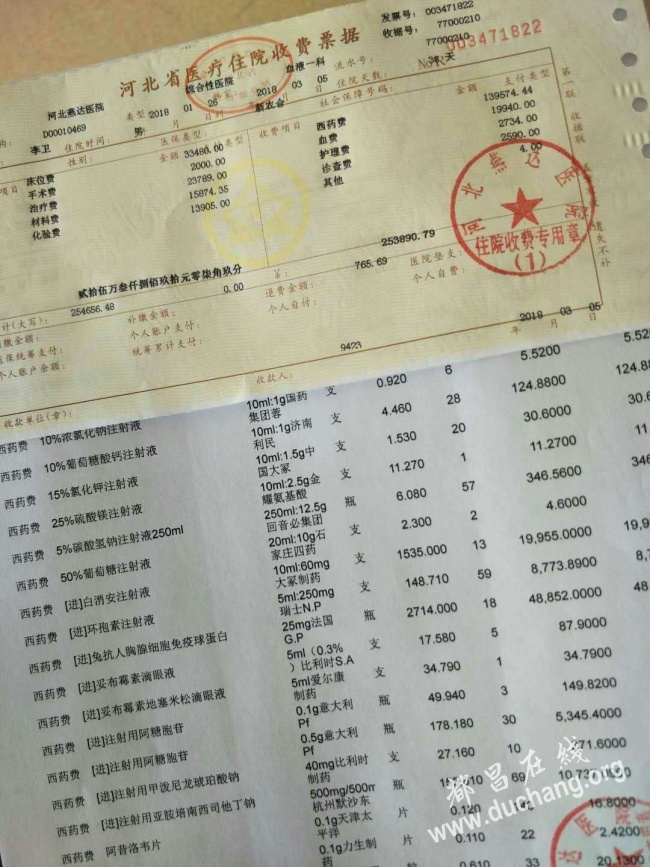 河北省医疗住院收费票据
发票号: 003471822
收据号: 77000210
77000210
No 003471822
河北燕达医院
类型 综合性医院
血液一科
流水号:
D00010469
住院时间: 2018 01 26
2018 03 05
住院天数: 38 天
李卫
性别: 男
医保类型: 新农合
社会保障号码:
项目 金额 收费项目 金额 支付类型
床位费 33480.00 西药费 139574.44
手术费 2000.00 血费 19940.00
治疗费 23789.00 护理费 2734.00
材料费 15874.35 诊查费 2590.00
化验费 13905.00 其他 4.00
贰拾伍万叁仟捌佰玖拾元零柒角玖分
253890.79
计(大写):
254656.48
补缴金额: 0.00
退费金额: 765.69
医院垫支:
个人账户支付:
个人自付:
个人自费:
个人账户余额:
统筹累计支付:
9423
2018 年 03 月 05
收款单位(章):
收款人:
第 联 收据联
遗失不补
河北燕达医院
住院收费专用章
(1)
西药费 10%浓氯化钠注射液 10ml:1g国药集团蓉 支 0.920 6 5.5200 5.5200
西药费 10%葡萄糖酸钙注射液 10ml:1g济南利民 支 4.460 28 124.8800 124.8800
西药费 15%氯化钾注射液 10ml:1.5g中国大冢 支 1.530 20 30.6000 30.6
西药费 25%硫酸镁注射液 10ml:2.5g金耀氨基酸 支 11.270 1 11.2700 11.
西药费 5%碳酸氢钠注射液250ml 250ml:12.5g回音必集团 瓶 6.080 57 346.5600 346
西药费 50%葡萄糖注射液 20ml:10g石家庄四药 支 2.300 2 4.6000
西药费 [进]白消安注射液 10ml:60mg大冢制药 支 1535.000 13 19,955.0000 19,95
西药费 [进]环孢素注射液 5ml:250mg瑞士N.P 支 148.710 59 8,773.8900 8,7
西药费 [进]兔抗人胸腺细胞免疫球蛋白 25mg法国G.P 瓶 2714.000 18 48,852.0000 48,
西药费 [进]妥布霉素滴眼液 5ml（0.3%）比利时S.A 支 17.580 5 87.9000
西药费 [进]妥布霉素地塞米松滴眼液 5ml爱尔康制药 支 34.790 1 34.7900
西药费 [进]注射用阿糖胞苷 0.1g意大利Pf 瓶 49.940 3 149.8200
西药费 [进]注射用阿糖胞苷 0.5g意大利Pf 瓶 178.180 30 5,345.4000
西药费 [进]注射用甲泼尼龙琥珀酸钠 40mg比利时制药 支 27.160 10 271.6000
西药费 [进]注射用亚胺培南西司他丁钠 500mg/500m杭州默沙东 瓶 69
西药费 阿昔洛韦片 0.1g天津太平洋 片 0.120 16.8000
0.1g力生制药 片 0.110 22 2.4200
0.610 33 20.1300
都昌在线
www.duchang.org